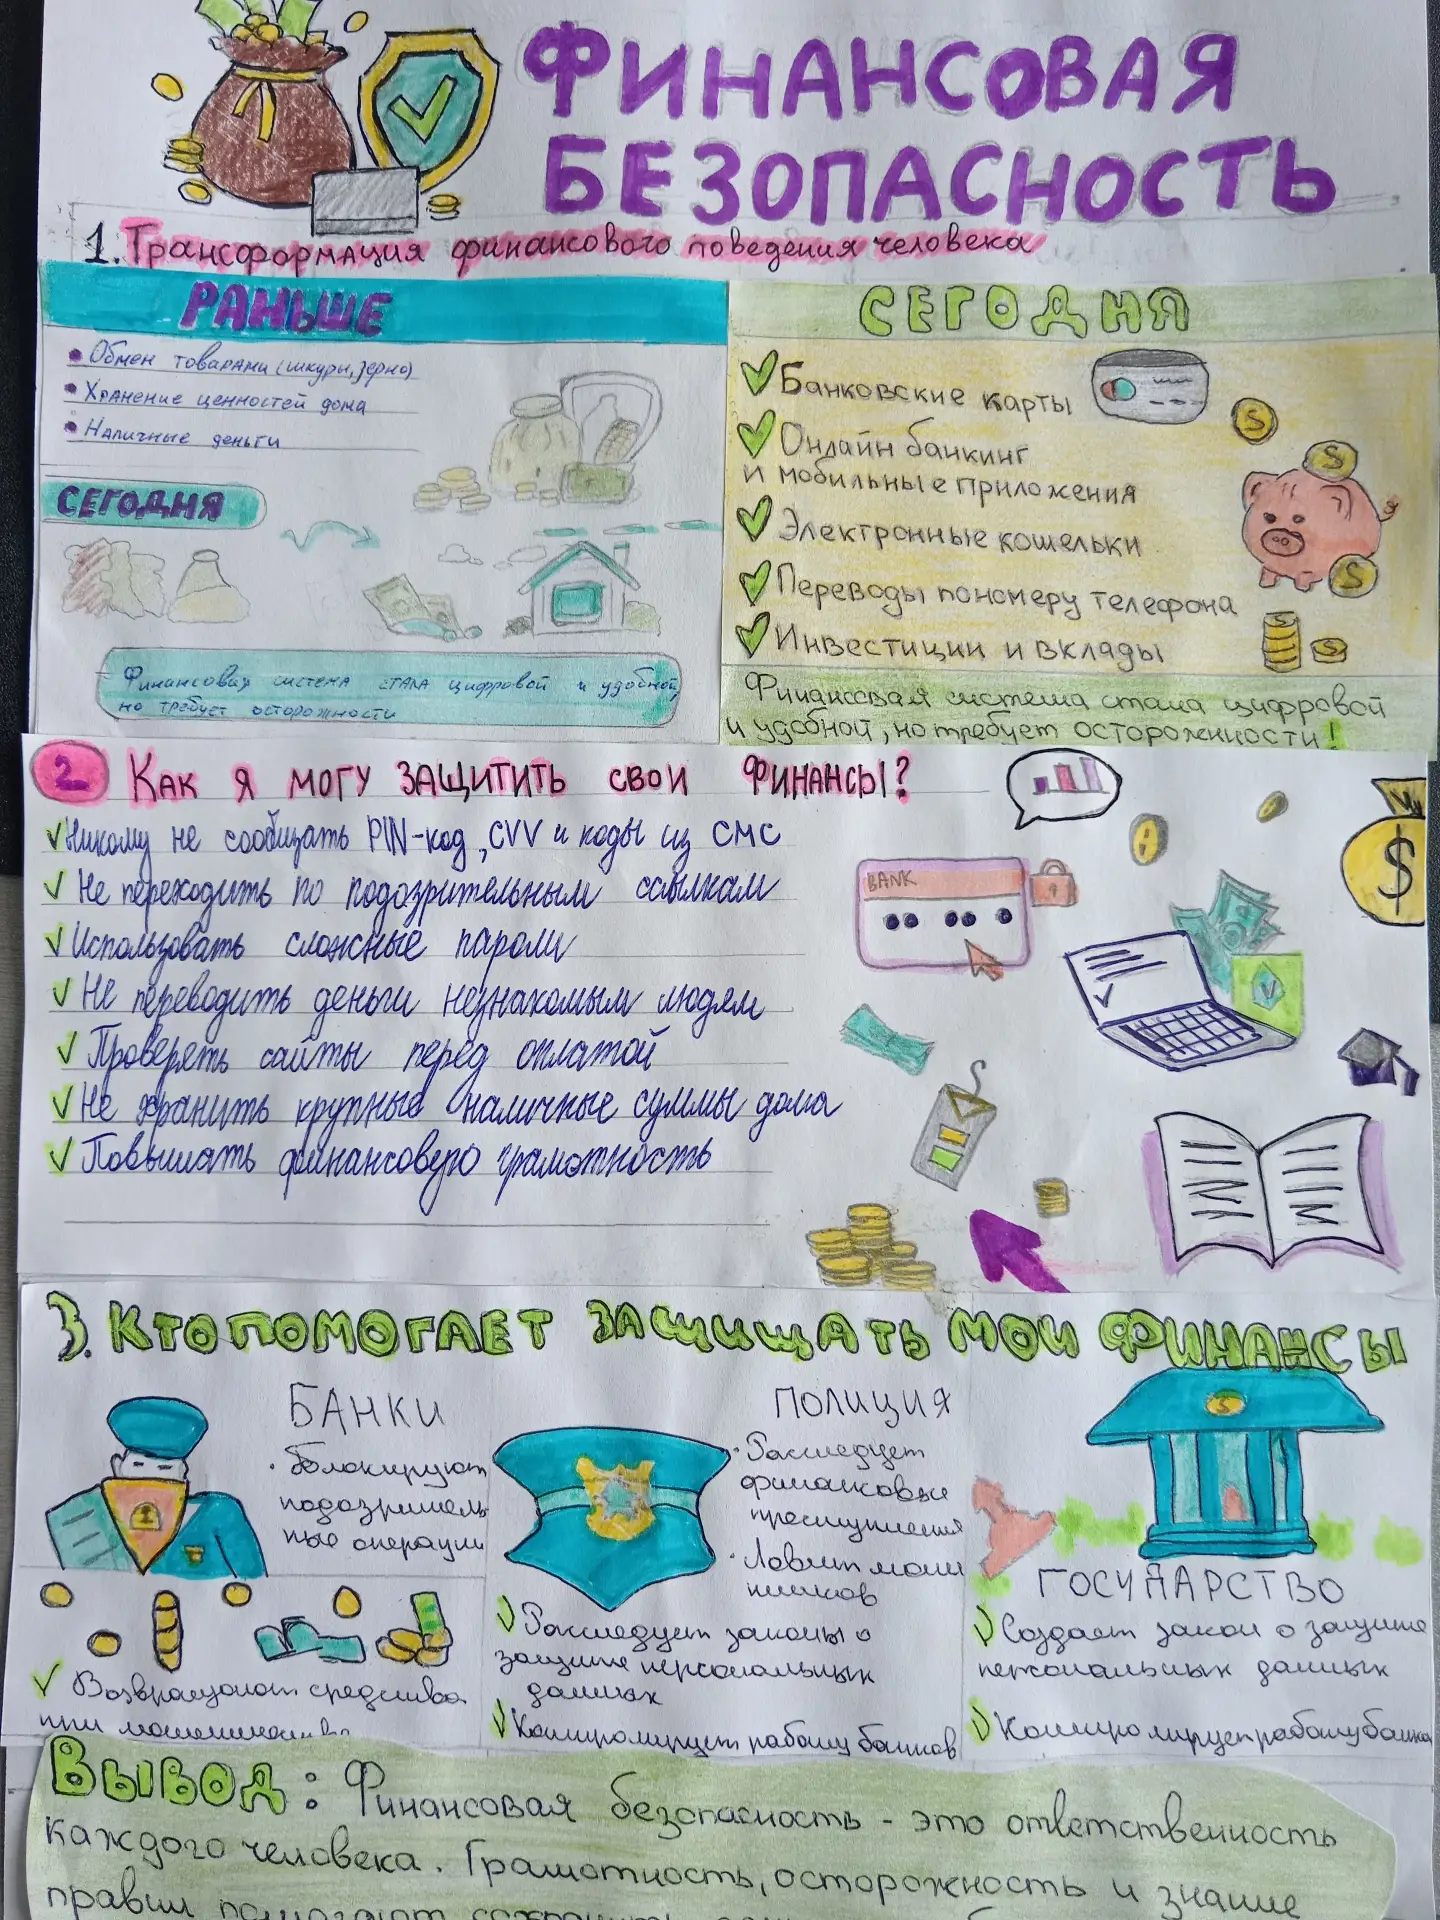 ФИНАНСОВАЯ
БЕЗОПАСНОСТЬ
1. Трансформация финансового поведения человека
РАНЬШЕ
• Обмен товарами (шкуры, зерно)
• Хранение ценностей дома
• Наличные деньги
СЕГОДНЯ
Финансовая система стала цифровой и удобной,
но требует осторожности
СЕГОДНЯ
Банковские карты
Онлайн банкинг
и мобильные приложения
Электронные кошельки
Переводы по номеру телефона
Инвестиции и вклады
Финансовая система стала цифровой
и удобной, но требует осторожности!
2 Как я могу защитить свои финансы?
Никому не сообщать PIN-код, CVV и коды из СМС
Не переходить по подозрительным ссылкам
Использовать сложные пароли
Не переводить деньги незнакомым людям
Проверять сайты перед оплатой
Не хранить крупные наличные суммы дома
Повышать финансовую грамотность
BANK
$
3. КТО ПОМОГАЕТ ЗАЩИЩАТЬ МОИ ФИНАНСЫ
БАНКИ
• Блокируют
подозритель
ные операции
Возвращают средства
при
ПОЛИЦИЯ
• Расследует
финансовые
преступления
• Ловит мош
нников
Расследует законы о
защите персональных
данных
Контролирует работу банков
ГОСУДАРСТВО
Создает закон о защите
персональных данных
Контролирует работу банка
ВЫВОД: Финансовая безопасность - это ответственность
каждого человека. Грамотность, осторожность и знание
правил помогают сохранить